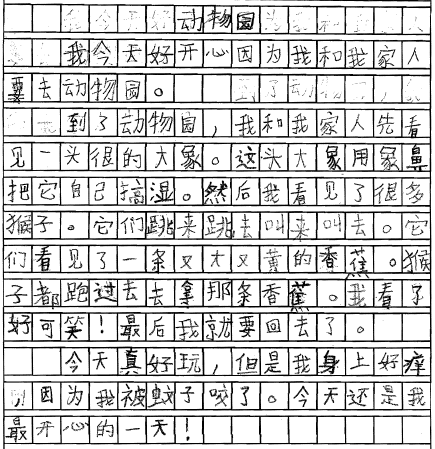 动物园
我今天好开心因为我和我家人
要去动物园。
到了动物园，我和我家人先看
见一头很的大象。这头大象用象鼻
把它自己搞湿。然后我看见了很多
猴子。它们跳来跳去叫来叫去。它
们看见了一条又大又黄的香蕉。猴
子都跑过去去拿那条香蕉。我看了
好可笑！最后我就要回去了。
今天真好玩，但是我身上好痒
因为我被蚊子咬了。今天还是我
最开心的一天！